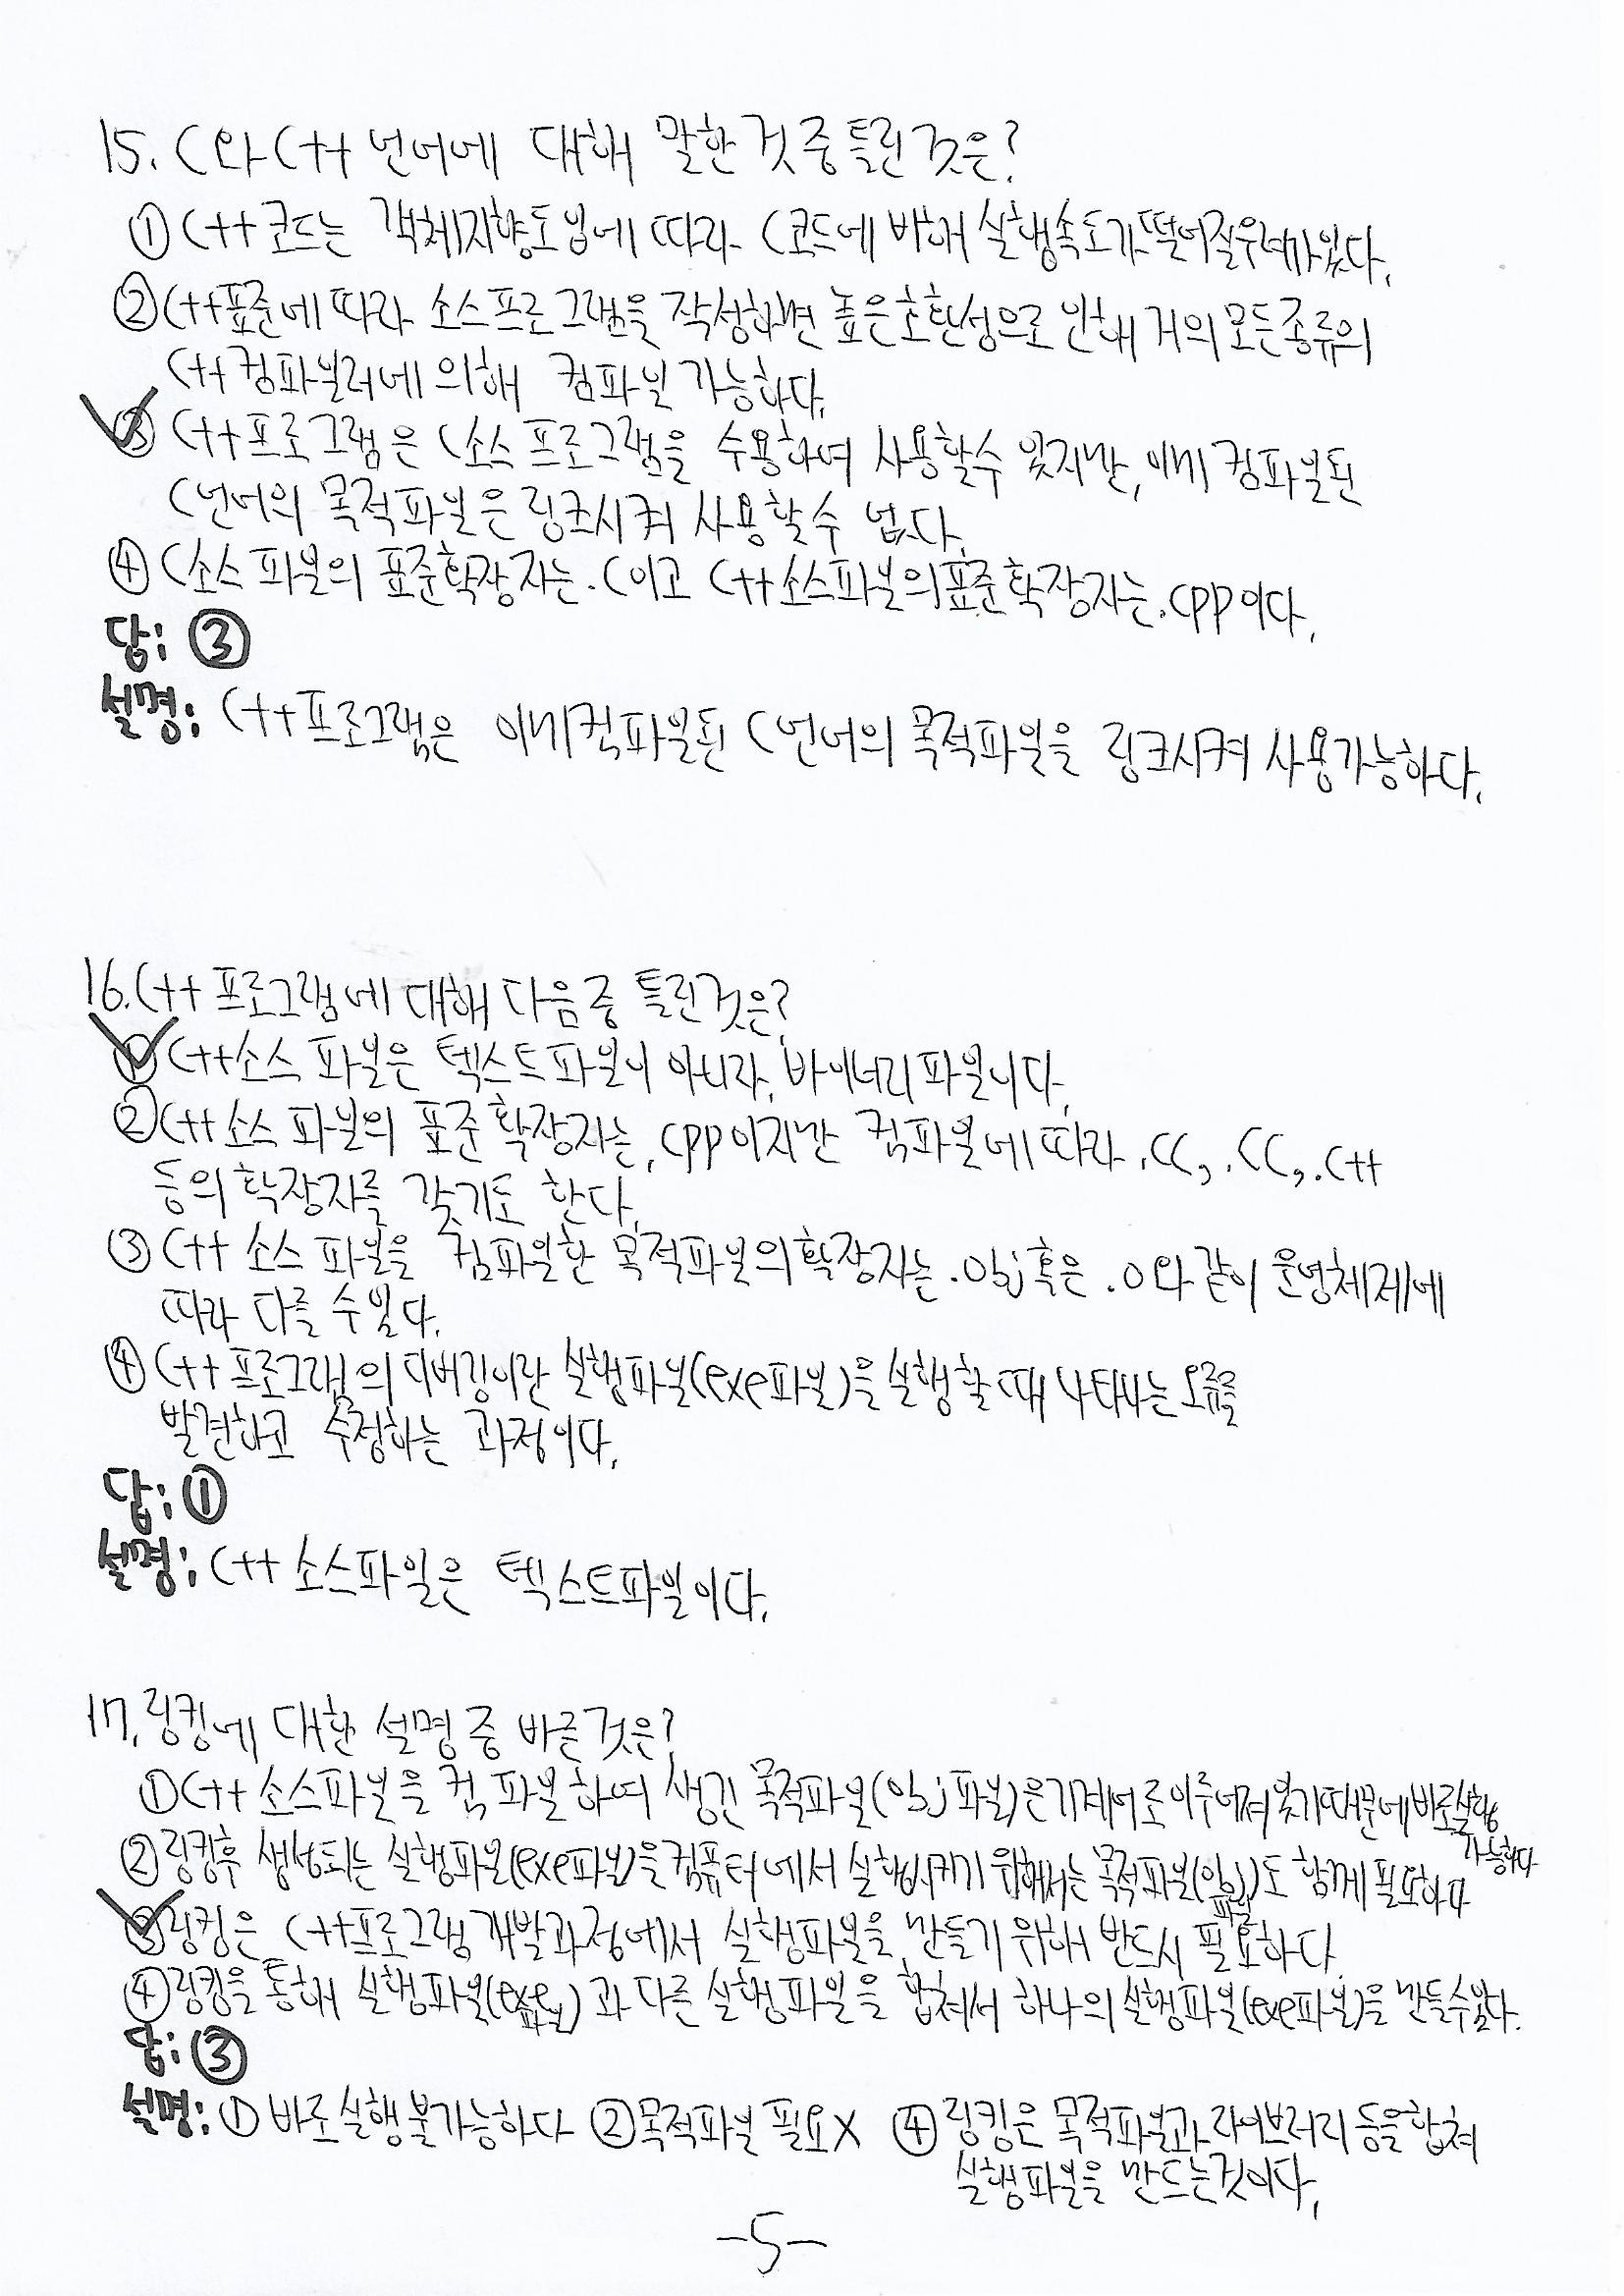 15. C와 C++ 언어에 대해 말한 것 중 틀린 것은?
① C++ 코드는 객체지향도입에 따라 C코드에 비해 실행속도가 떨어질 우려가 있다.
② C++표준에 따라 소스프로그램을 작성하면 높은호환성으로 인해 거의 모든종류의
C++컴파일러에 의해 컴파일 가능하다.
③ C++프로그램은 C소스 프로그램을 수용하여 사용할수 있지만, 이미 컴파일된
C언어의 목적파일은 링크시켜 사용할 수 없다.
④ C소스 파일의 표준확장자는 .C이고 C++소스파일의 표준확장자는 .cpp이다.
답: ③
설명: C++프로그램은 이미컴파일된 C언어의 목적파일을 링크시켜 사용가능하다.
16. C++ 프로그램에 대해 다음 중 틀린것은?
① C++소스 파일은 텍스트파일이 아니라, 바이너리 파일이다.
② C++소스 파일의 표준 확장자는 .cpp이지만 컴파일에 따라 .CC, .CC, .C++
등의 확장자를 갖기도 한다.
③ C++ 소스 파일을 컴파일한 목적파일의 확장자는 .obj 혹은 .o와 같이 운영체제에
따라 다를 수있다.
④ C++프로그램의 디버깅이란 실행파일(exe파일)을 실행할 때 나타나는 오류를
발견하고 수정하는 과정이다.
답: ①
설명: C++ 소스파일은 텍스트파일이다.
17. 링킹에 대한 설명 중 바른것은?
① C++ 소스파일을 컴파일하여 생긴 목적파일(obj파일)은 기계어로 이루어져있기 때문에 바로실행
가능하다
② 링킹후 생성되는 실행파일(exe파일)을 컴퓨터에서 실행시키기 위해서는 목적파일(obj파일)도 함께 필요하다
③ 링킹은 C++프로그램 개발과정에서 실행파일을 만들기 위해 반드시 필요하다.
④ 링킹을 통해 실행파일(exe파일)과 다른 실행파일을 합쳐서 하나의 실행파일(exe파일)을 만들수있다.
답: ③
설명: ① 바로실행 불가능하다 ② 목적파일 필요X ④ 링킹은 목적파일과 라이브러리 등을합쳐
실행파일을 만드는것이다.
-5-